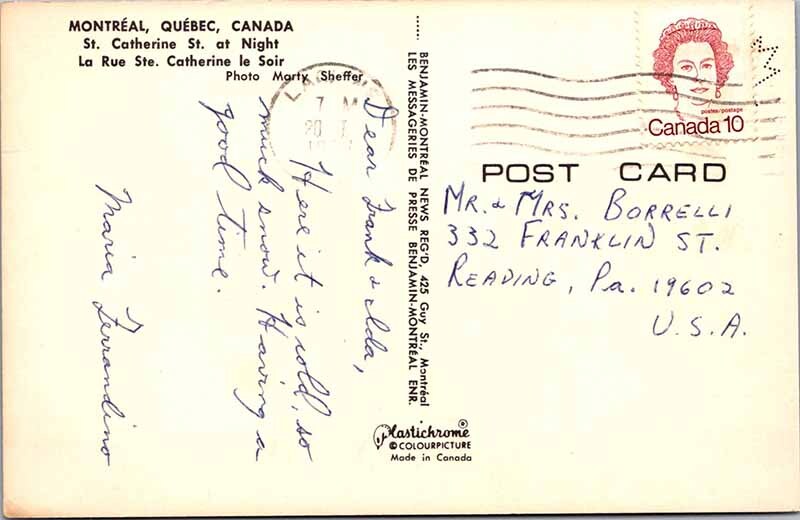 MONTRÉAL, QUÉBEC, CANADA
St. Catherine St. at Night
La Rue Ste. Catherine le Soir
Photo Marty Sheffer
7 M
Dear Frank & Ida,
Here it is cold, so
much snow. Having a
good time.
Maria Ferrandino
BENJAMIN-MONTRÉAL NEWS REG'D, 425 Guy St., Montréal
LES MESSAGERIES DE PRESSE BENJAMIN-MONTRÉAL ENR.
Plastichrome®
© COLOURPICTURE
Made in Canada
postes/postage
Canada 10
POST CARD
MR. & MRS. BORRELLI
332 FRANKLIN ST.
READING, Pa. 19602
U.S.A.